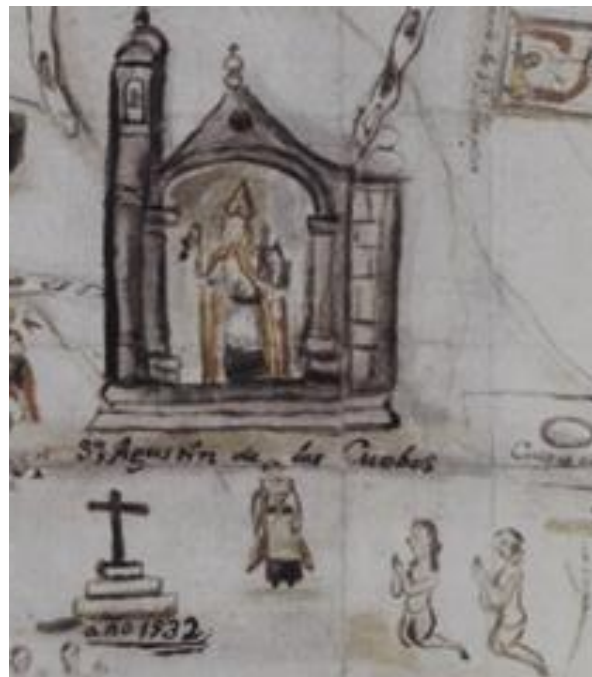 Sn Agustín de las Cuebas
año 1532